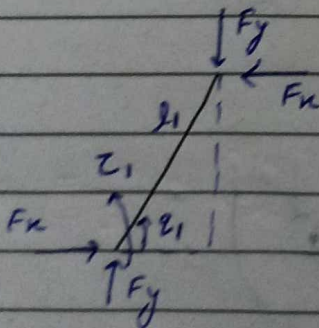 Fy
Fx
l₁
τ₁
Fx
q₁
Fy